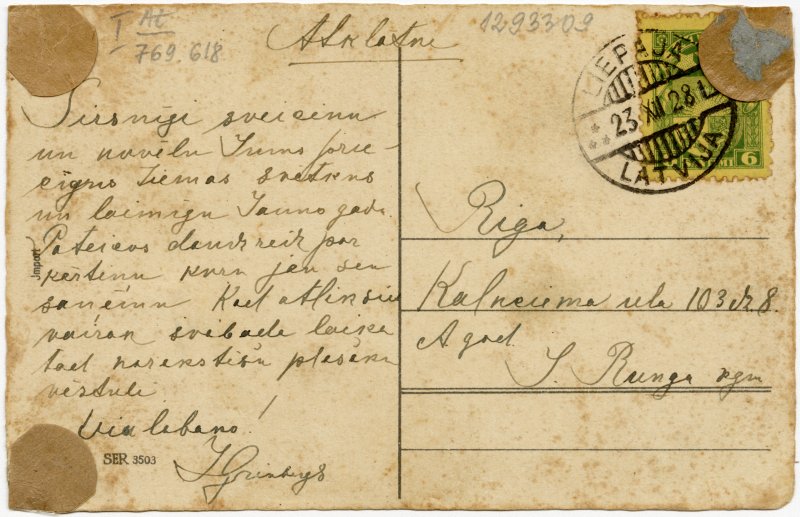 I At
769.618
1293309
Atklatne
LIEPAJA
23 XII 28
LATVIJA
6
Sirsnigi sveicinu
un novēlu Jums prie-
cigus Ziemas svetkus
un laimigu Jauno gadu
Pateicos daudzreiz par
kartinu kuru jau sen
saņēmu Kad atliksies
vairak svabada laika
tad
plašaku
vēstuli
Visu labano!
JGrinbergs
Import
SER 3503
Riga,
Kalnciema iela 103 dz 8.
A god.
J. Runga kgm